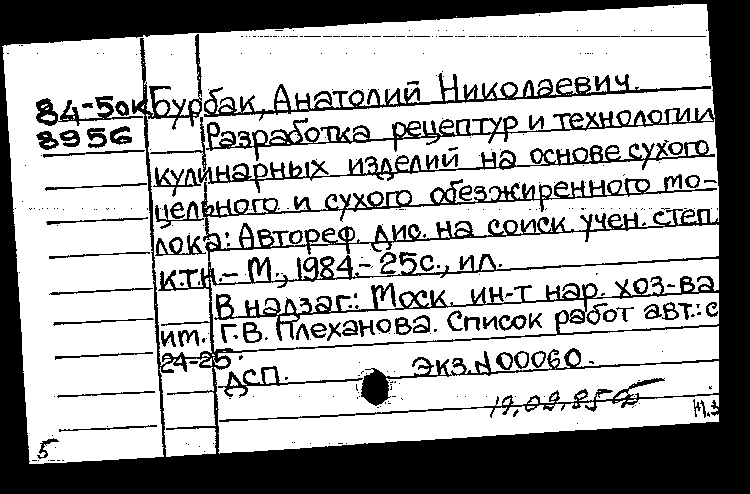 84-5ок Бурбак, Анатолий Николаевич.
8956 Разработка рецептур и технологии
кулинарных изделий на основе сухого
цельного и сухого обезжиренного мо-
лока: Автореф. дис. на соиск. учен. степ.
к.т.н. – М., 1984. – 25с., ил.
В надзаг.: Моск. ин-т нар. хоз-ва
им. Г.В. Плеханова. Список работ авт.: с
24-25.
ДСП. Экз. N 00060.
19.09.85
5